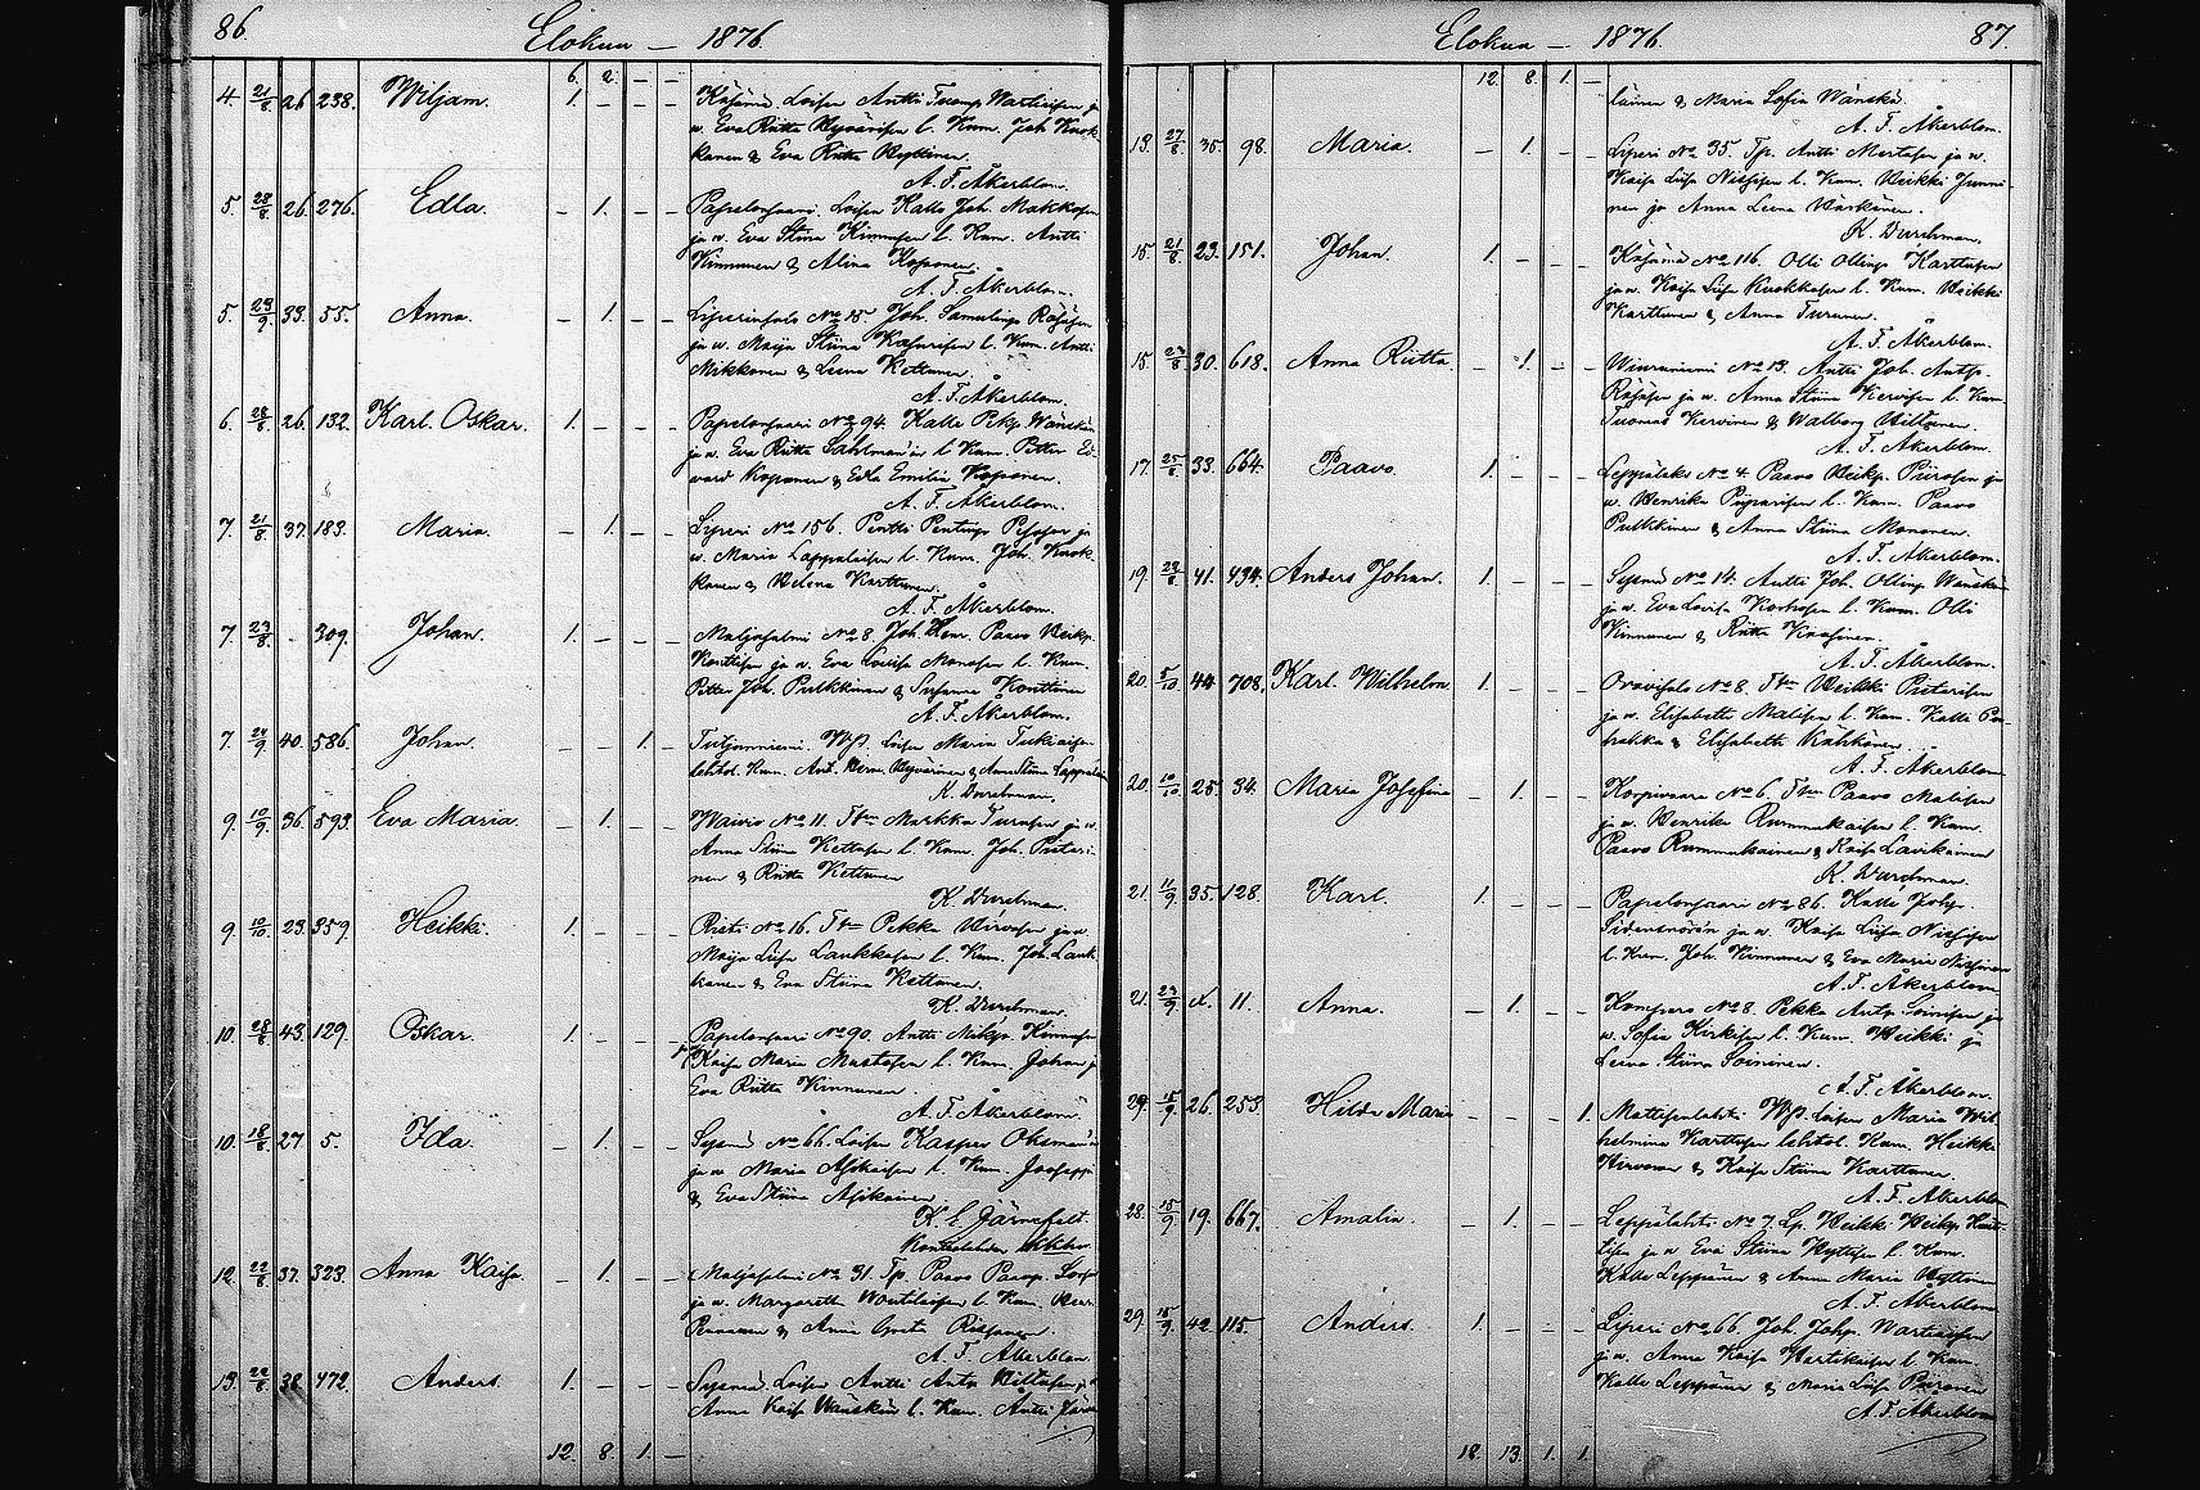 86.
Elokuu — 1876.
6. 2. — —
4. 21/8 26 238. Wiljam. 1. — — — Käsämä. Loisen Antti Tuomp. Wartiaisen ja
w. Eva Riitta Hyvärisen l. Kum. Joh. Kuok-
kanen & Eva Riitta Hyttinen.
A. F. Åkerblom.
5. 28/8 26. 276. Edla. — 1. — — Papelonsaari. Loisen Kalle Joh. Makkosen
ja w. Eva Stina Kinnusen l. Kum. Antti
Kinnunen & Alina Koponen.
A. F. Åkerblom.
5. 23/9. 33. 55. Anna. — 1. — — Liperinsalo No 15. Joh. Samulinp. Räsäsen
ja w. Maija Stiina Kasurisen l. Kum. Antti
Mikkonen & Leena Kettunen.
A. F. Åkerblom.
6. 28/8. 26. 132. Karl. Oskar. 1. — — — Papelonsaari No 94. Kalle Pekp. Wänskän
ja w. Eva Riitta Sahlman'in l. Kum. Petter Ed-
vard Koponen & Edla Emilia Koponen.
A. F. Åkerblom.
7. 21/8. 37. 183. Maria. — 1. — — Liperi No 156. Pentti Pentinp. Pesosen ja
w. Maria Lappalaisen l. Kum. Joh. Kuok-
kanen & Helena Karttunen.
A. F. Åkerblom.
7. 23/8. - 309. Johan. 1. — — — Maljasalmi No 8. Joh. Henr. Paavo Heikp.
Konttisen ja w. Eva Lovisa Monosen l. Kum.
Petter Joh. Pulkkinen & Susanna Konttinen
A. F. Åkerblom.
7. 24/9 40. 586. Johan. — — 1. — Tutjunniemi. Wp. Loisen Maria Tukiaisen
lehtol. Kum. Ant. Herm. Hyvärinen & Anna Stiina Lappalain
K. Durchman.
9. 10/9. 36. 593. Eva Maria. — 1. — — Waivio No 11. Markka Turusen ja w.
Anna Stiina Kettusen l. Kum. Joh. Pietari-
nen & Riitta Kettunen
K. Durchman.
9. 10/10 23. 359. Heikki. 1. — — — Risti No 16. Pekka Hirvosen ja w.
Maija Liisa Laukkasen l. Kum. Joh. Lauk-
kanen & Eva Stiina Kettunen.
K. Durchman.
10. 28/8. 43. 129. Oskar. 1. — — — Papelonsaari No 90. Antti Mikp. Kinnusen
ja w. Kaisa Maria Mustosen l. Kum. Johan ja
Eva Riitta Kinnunen.
A. F. Åkerblom.
10. 18/8. 27 5. Ida. — 1. — — Sysmä No 66. Loisen Kasper Oksman'in
ja w. Maria Asikaisen l. Kum. Jooseppi
& Eva Stiina Asikainen.
K. E. Järnefelt.
Kontiolahden
12. 22/8 37. 323. Anna Kaisa. — 1. — — Maljasalmi No 31. Tp. Paavo Paavop.
ja w. Margaretta Woutilaisen l. Kum. Henr.
Pennanen & Anna Greta Rissanen.
A. F. Åkerblom.
13. 22/8. 38. 472. Anders. 1. — — — Sysmä. Loisen Antti Antp. Hiltusen ja w
Anna Kaisa Wänskän l. Kum. Antti
12. 8. 1. —
Elokuu — 1876.
87.
12. 8. 1. —
läinen & Maria Sofia Wänskä.
A. F. Åkerblom.
13. 27/8. 35. 98. Maria. — 1. — — Liperi No 35. Tp. Antti Mertasen ja w.
Kaisa Liisa Nissisen l. Kum. Heikki Junni-
nen ja Anna Leena Härkänen.
K. Durchman.
15. 21/8 23. 151. Johan. 1. — — — Käsämä No 116. Olli Ollinp. Karttusen
ja w. Kaisa Liisa Kuokkasen l. Kum. Heikki
Karttunen & Anna Turunen.
A. F. Åkerblom.
15. 23/8. 30. 618. Anna Riitta. — 1. — — Wiinranniemi No 13. Antti Joh. Antp.
Räsäsen ja w. Anna Stiina Kervisen l. Kum.
Tuomas Kervinen & Walborg Hiltunen.
A. F. Åkerblom.
17. 25/8 33. 664. Paavo. 1. — — — Leppälaks No 4. Paavo Heikp. Piirosen ja
w. Henrika Piiparisen l. Kum. Paavo
Pulkkinen & Anna Stiina Mononen.
A. F. Åkerblom.
19. 23/8 41. 434. Anders Johan. 1. — — — Sysmä No 14. Antti Joh. Ollinp. Wänskän
ja w. Eva Lovisa Korhosen l. Kum. Olli
Kinnunen & Riitta Knosinen.
A. F. Åkerblom.
20. 8/10. 44 708. Karl. Wilhelm. 1. — — — Oravisalo No 8. Heikki Pietarisen
ja w. Elisabetti Malisen l. Kum. Kalle
& Elisabetti Kähkönen.
A. F. Åkerblom
20. 10/10 25. 34. Maria Josefina — 1. — — Korpivaara No 6. Paavo Malisen
ja w. Henrika Rummukaisen l. Kum.
Paavo Rummukainen & Kaisa Lavikainen
K. Durchman.
21. 11/9. 35. 128. Karl. 1. — — — Papelonsaari No 86. Kalle Johp.
Sidensnörin ja w. Kaisa Liisa Nissisen
l. Kum. Joh. Kinnunen & Eva Maria Nissinen
A. F. Åkerblom.
21. 23/9. x. 11. Anna. — 1. — — Komperо No 8. Pekka Antp. Soinisen ja
w. Sofia Kirkisen l. Kum. Heikki ja
Leena Stiina Soininen.
A. F. Åkerblom.
29. 15/9. 26. 253. Hilda Maria — — — 1. Mattisenlahti Wp. Loisen Maria Wil-
helmina Karttusen lehtol. Kum. Heikki
Hirvonen & Kaisa Stiina Karttunen.
A. F. Åkerblom
28. 15/9. 19. 667. Amalia. — 1. — — Leppälahti No 7. Lp. Heikki Heikp.
ja w Eva Stiina Hyttisen l. Kum.
Kalle Leppänen & Anna Maria Hyttinen
A. F. Åkerblom
29. 15/9. 42. 115. Anders. 1. — — — Liperi No 66. Joh. Johp. Wartiaisen
ja w. Anna Kaisa Wartikaisen l. Kum.
Kalle Leppänen & Maria Liisa Piironen
A. F. Åkerblom
18. 13. 1. 1.